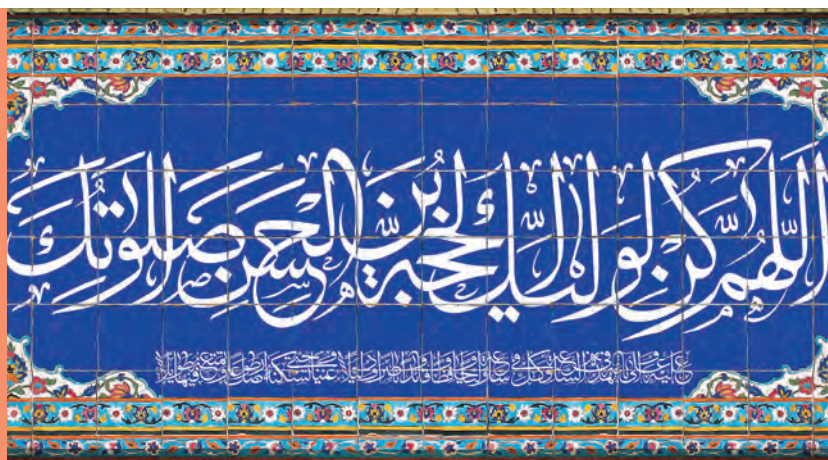 اللهم كن لوليك الحجة بن الحسن صلواتك
عليه وعلى آبائه في هذه الساعة وفي كل ساعة وليا وحافظا وقائدا وناصرا ودليلا وعينا حتى تسكنه أرضك طوعا وتمتعه فيها طويلا